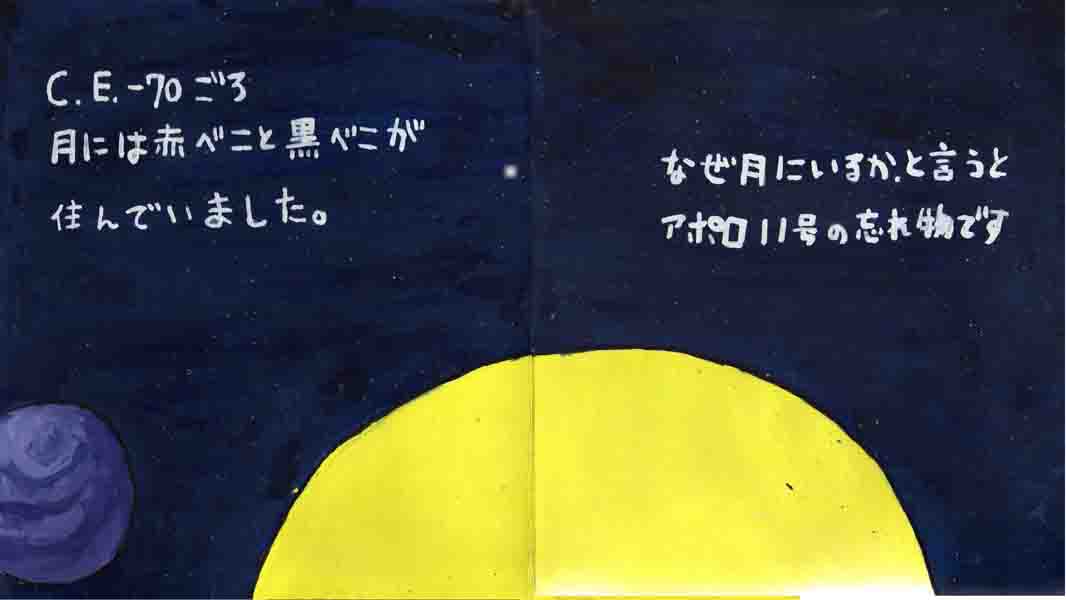 C.E.-70ごろ
月には赤べこと黒べこが
住んでいました。
なぜ月にいるか、と言うと
アポロ11号の忘れ物です